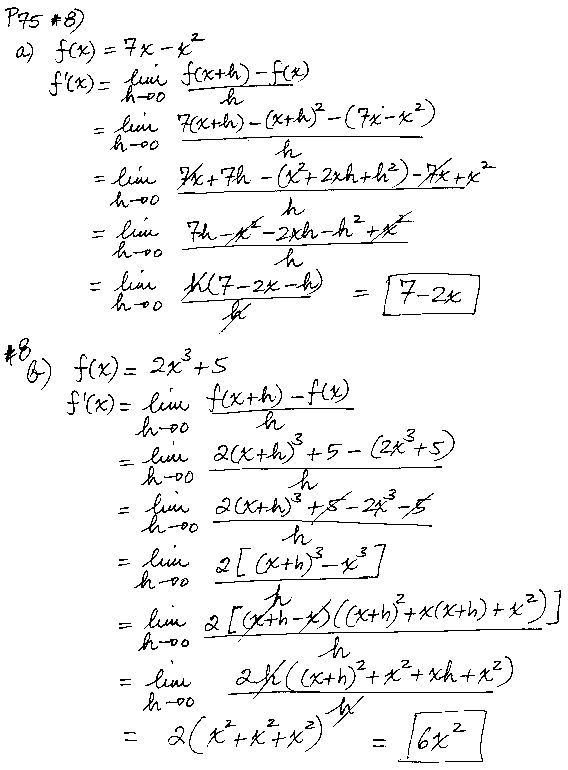 P75 #8)
a) f(x) = 7x - x²
f'(x) = lim h→0 (f(x+h) - f(x)) / h
= lim h→0 (7(x+h) - (x+h)² - (7x - x²)) / h
= lim h→0 (7x + 7h - (x² + 2xh + h²) - 7x + x²) / h
= lim h→0 (7h - x² - 2xh - h² + x²) / h
= lim h→0 h(7 - 2x - h) / h = 7 - 2x
#8 b) f(x) = 2x³ + 5
f'(x) = lim h→0 (f(x+h) - f(x)) / h
= lim h→0 (2(x+h)³ + 5 - (2x³ + 5)) / h
= lim h→0 (2(x+h)³ + 5 - 2x³ - 5) / h
= lim h→0 2[(x+h)³ - x³] / h
= lim h→0 2[(x+h-x)((x+h)² + x(x+h) + x²)] / h
= lim h→0 2h((x+h)² + x² + xh + x²) / h
= 2(x² + x² + x²) = 6x²